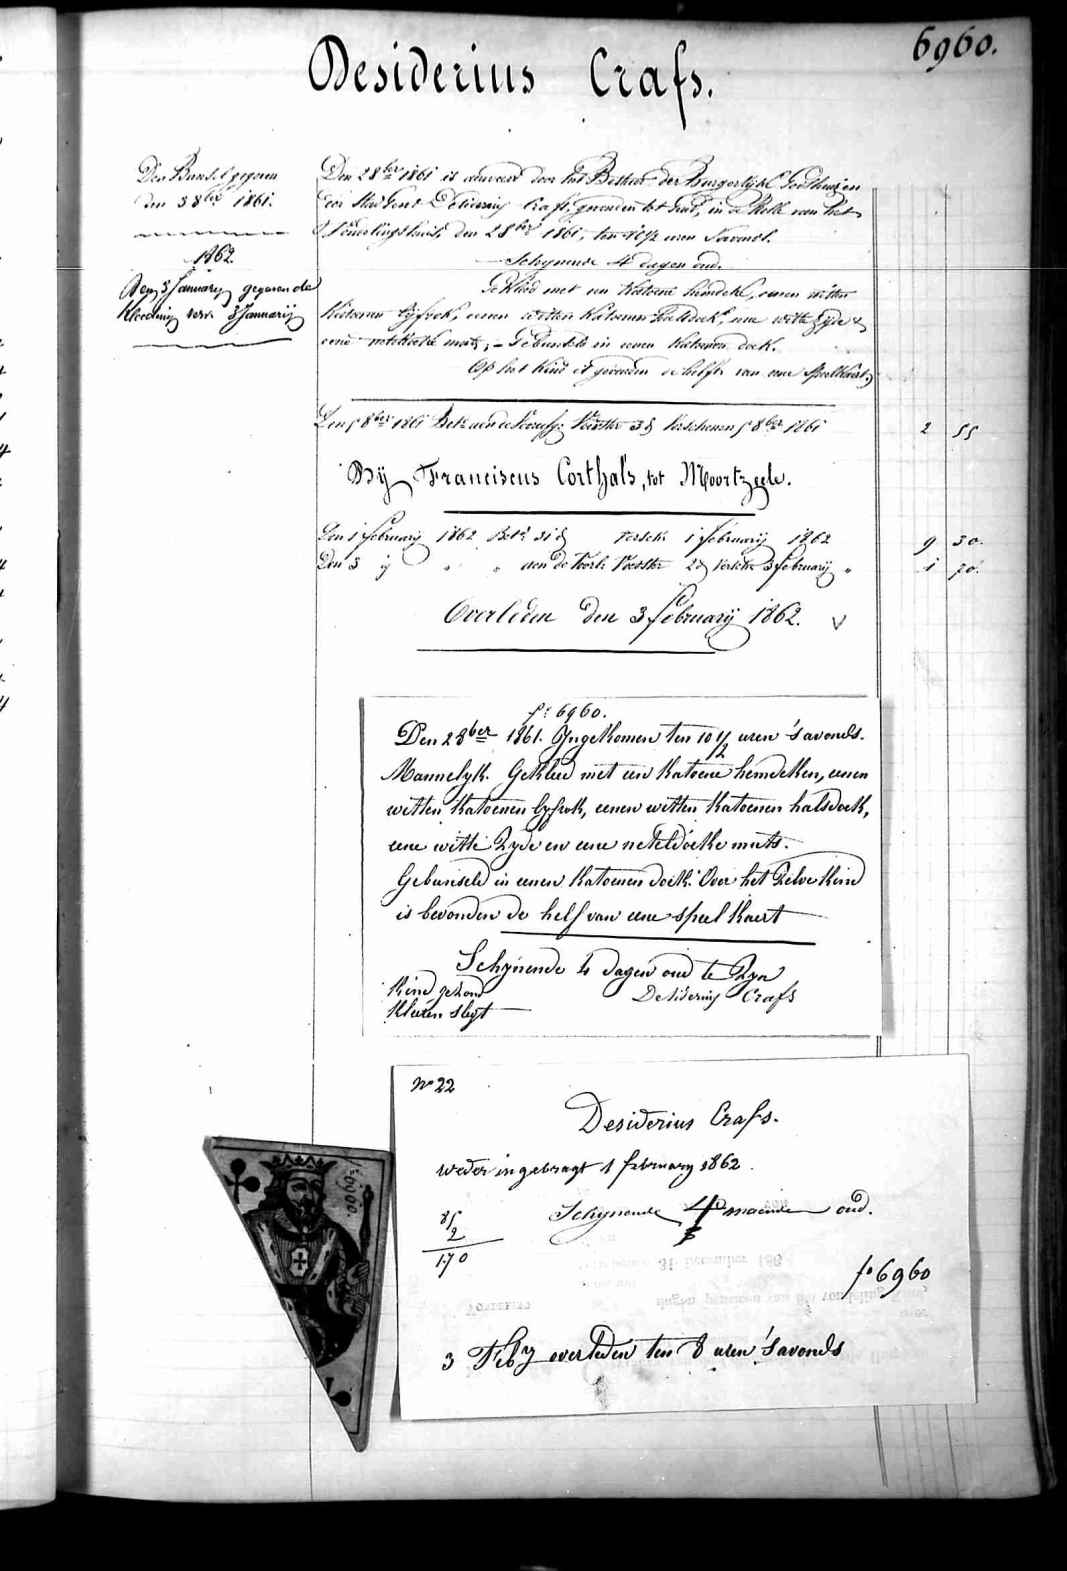 6960.
Desiderius Crafs.
Den Bund. gegeven
den 3 8ber 1861.
1862.
Den 3 January gegeven de
kleeding verv. 3 Januarij
Den 2 8ber 1861 is aenveerd door het Beheer der Burgerlyke Godshuizen
der Stad Gent Desiderius Crafs, gevonden tot Gent, in de Rolle van het
Vondelingshuis, den 2 8ber 1861, ten 10½ uren s'avonds.
Schynende 4 dagen oud.
Gekleed met een Katoene hemdeke, eenen witten
Katoenen lyfrok, eenen witten Katoenen halsdoek, eene witte Zyde &
eene neteldoeke muts, - Gebunseld in eenen Katoenen doek.
Op het Kind is gevonden de helft van eene speelkaert.
Den 5 8ber 1861 Bet. aen de Voorz. Voedster 3 d verschenen 5 8ber 1861
2 55
By Franciscus Corthals, tot Moortzeele.
Den 1 februarij 1862 Betd 31 d versch. 1 februarij 1862
9 30.
Den 3 ij " " aen de Voorz. Voedstr 2 d versch. 3 februarij "
1 70.
Overleden den 3 februarij 1862. V
fo 6960.
Den 2 8ber 1861. Yngekomen ten 10 ½ uren 's avonds.
Mannelyk. Gekleed met een Katoene hemdeken, eenen
witten Katoenen lyfrok, eenen witten Katoenen halsdoek,
eene witte Zyde en eene neteldoeke muts.
Gebunseld in eenen Katoenen doek. Over het Zelve Kind
is bevonden de helf van eene speel Kaert
Schynende 4 dagen oud te Zyn
Kind gezond
Desiderius Crafs
Kleeren slegt
No 22
Desiderius Crafs.
weder ingebragt 1 february 1862.
Schynende 4 maende oud.
85
2
1.70
fo 6960
3 Feby overleden ten 8 uren 's avonds
fo 6960